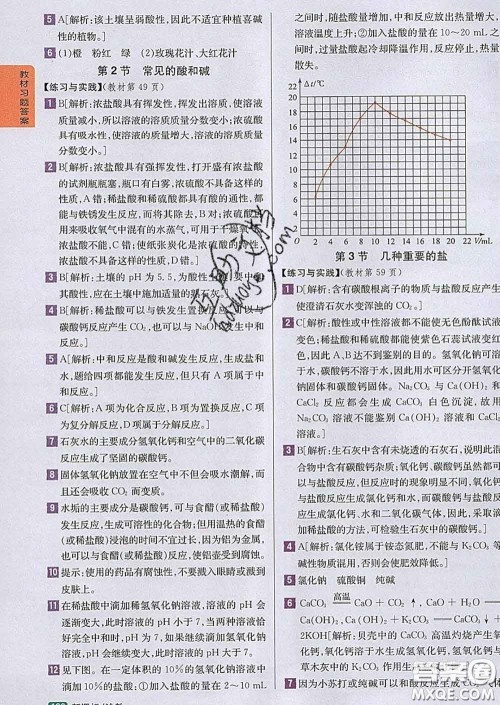 5 A[解析:该土壤呈弱酸性,因此不适宜种植喜碱
性的植物。]
6 (1)橙 粉红 绿 (2)玫瑰花汁、大红花汁
第 2 节 常见的酸和碱
【练习与实践】(教材第 49 页)
1 B[解析:浓盐酸具有挥发性,挥发出溶质,使溶液
质量减小,所以溶液的溶质质量分数变小;浓硫酸
具有吸水性,使溶液的质量增大,溶液的溶质质量
分数变小。]
2 B[解析:浓盐酸具有强挥发性,打开盛有浓盐酸
的试剂瓶瓶塞,瓶口有白雾,浓硫酸不具备这样的
性质,A 错;稀盐酸和稀硫酸都具有酸的通性,都
能与铁锈发生反应,而除去铁锈,B 对;浓硫酸可
用来吸收氧气中混有的水蒸气,可用于干燥氧气,
浓盐酸不能,C 错;使纸张炭化是浓硫酸的特性,
浓盐酸不具备这样的性质,D错。]
3 B[解析:土壤的 pH 为 5.5,为酸性
酸性,应在土壤中施加适量的熟石灰。]
4 B[解析:稀盐酸可以与铁发生置换反应,可以与
碳酸钙反应产生 CO₂,也可以与 NaOH 发生中和
反应。]
5 A[解析:中和反应是酸和碱发生反应,生成盐和
水,题给四项都能发生反应,但只有 A 项属于中
和反应。]
6 C[解析:A 项为化合反应,B 项为置换反应,C 项
为复分解反应,D 项属于分解反应。]
7 石灰水的主要成分氢氧化钙和空气中的二氧化碳
反应生成了坚固的碳酸钙。
8 固体氢氧化钠放置在空气中不但会吸水潮解,而
且会吸收 CO₂ 而变质。
9 水垢的主要成分是碳酸钙,可与食醋(或稀盐酸)
发生反应,生成可溶性的化合物;但用温热的食醋
(或稀盐酸)浸泡的时间不宜过长,因为铝为金属,
也可以与食醋(或稀盐酸)反应,使铝壶受到腐蚀。
10 提示:使用的药品有腐蚀性,不要溅入眼睛或溅到
皮肤上。
11 在稀盐酸中滴加稀氢氧化钠溶液,溶液的 pH 会
逐渐变大,此时溶液的 pH 小于 7,当两种溶液恰
好完全中和时,pH 为 7,如果继续滴加氢氧化钠溶
液,pH 会继续变大,此时溶液的 pH 大于 7。
12 见下图。在一定体积的 10%的氢氧化钠溶液中滴
加 10%的盐酸:①加入盐酸的量在 2~10 mL
时,随盐酸量增加,中和反应放出热量增多,
溶液温度上升;②加入盐酸的量在 10~20 mL 之
时,过量盐酸起冷却降温作用,反应停止,热量
散失。
Δt/℃
22
20
18
16
14
12
10
8
6
4
2
0 2 4 6 8 10 12 14 16 18 20 22 V/mL
第 3 节 几种重要的盐
【练习与实践】(教材第 59 页)
1 D[解析:含有碳酸根离子的物质与盐酸反应产
使澄清石灰水变浑浊的 CO₂。]
2 C[解析:酸性或中性溶液都不能使无色酚酞试液
变色;稀盐酸和稀硫酸都能使紫色石蕊试液变红
色,因此 A、B达不到鉴别目的。氢氧化钠可溶于
水,碳酸钙不溶于水,因此可用水来鉴别氢氧化
钠固体和碳酸钙固体。Na₂CO₃ 与 Ca(OH)₂ 和
CaCl₂ 反应都会生成 CaCO₃ 白色沉淀,故用
Na₂CO₃ 溶液不能鉴别 Ca(OH)₂ 溶液和 CaCl₂
溶液。]
3 B[解析:生石灰中含有未烧透的石灰石,说明此混
合物中含有碳酸钙杂质;氧化钙、碳酸钙虽然都可
以与盐酸反应,但反应时的现象明显不同,氧化钙
反应生成氯化钙和水,而碳酸钙与盐酸
应生成氯化钙、水和二氧化碳,因此,采取
滴加盐酸可检验生石灰中的碳酸钙。]
4 A[解析:氯化铵属于铵态氮肥,不能与 K₂CO₃ 等
碱性物质混用,否则会使肥效降低。]
5 氯化钠 硫酸铜 纯碱
6 CaCO₃ 高温 CaO + CO₂ ↑ CaO + H₂O
Ca(OH)₂ Ca(OH)₂ + K₂CO₃ CaCO₃ ↓ +
2KOH[解析:贝壳中的 CaCO₃ 高温灼烧产生氧